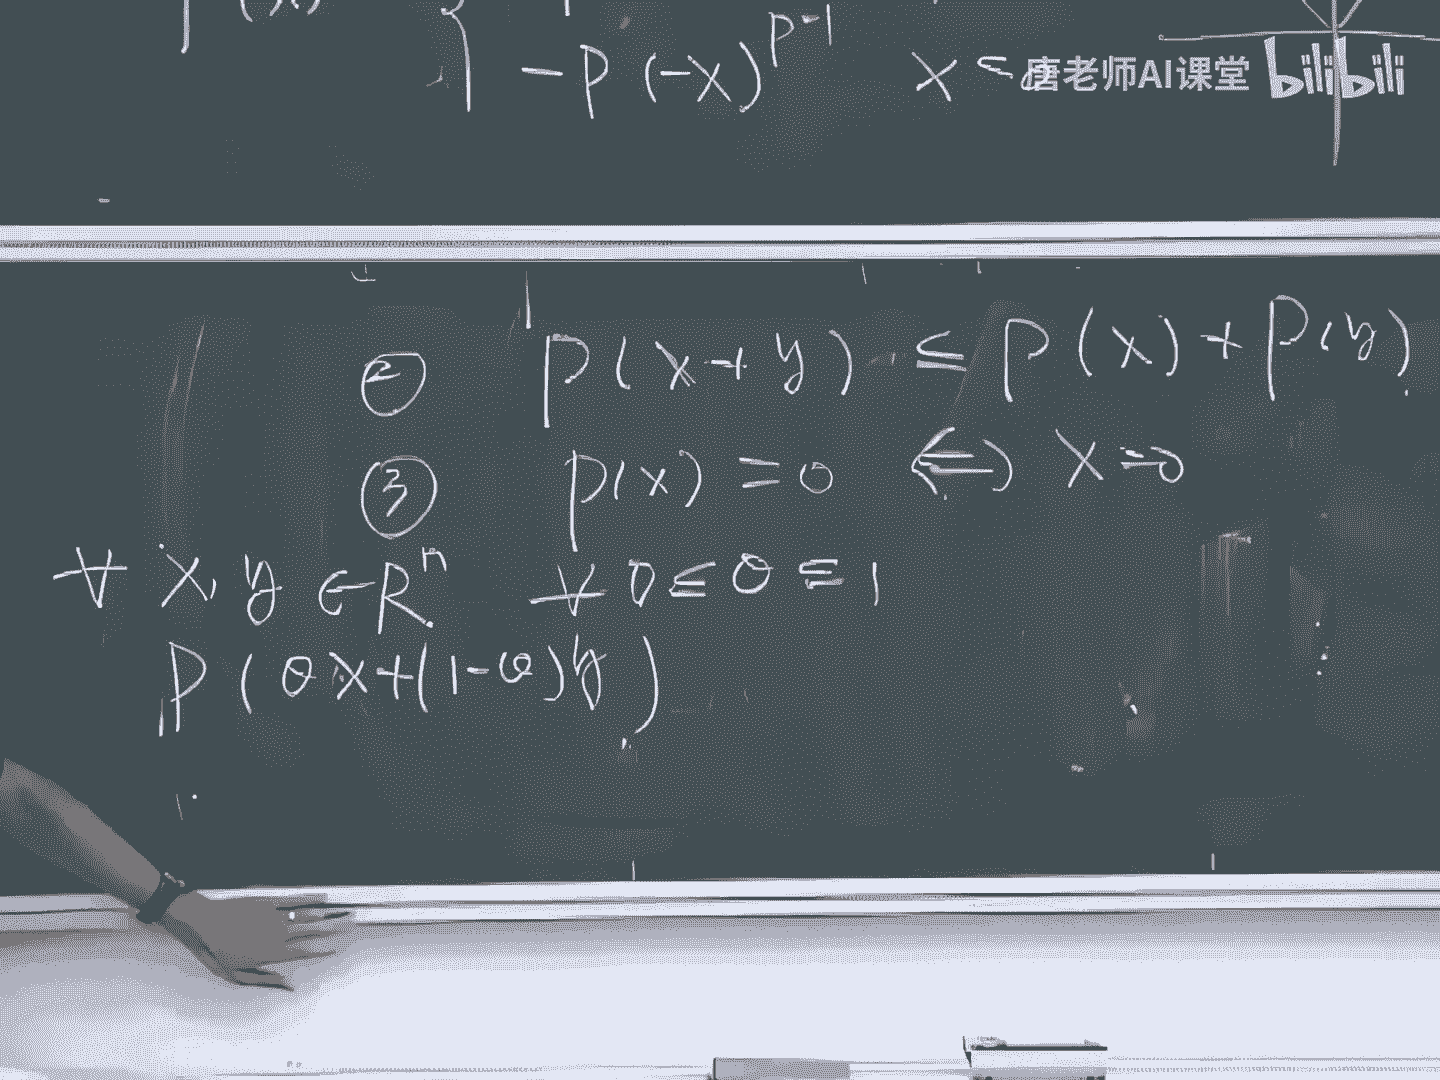 -P(-x)^{p-1} x ≤
唐老师AI课堂 bilibili
② P(x+y) ≤ P(x)+P(y)
③ P(x) = 0 ⇔ x=0
∀ x, y ∈ R^n ∀ 0 ≤ θ ≤ 1
P(θx+(1-θ)y)